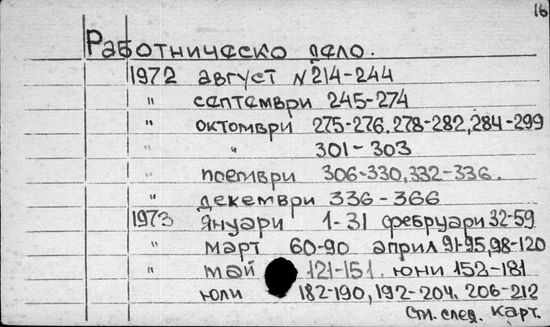 16
Работническо дело.
1972 август N 214-244
" септември 245-274
" октомври 275-276, 278-282, 284-299
" " 301-303
" ноември 306-330, 332-336.
" декември 336-366
1973 Януари 1-31 февруари 32-59
" март 60-90 април 91-95, 98-120
" май 121-151. юни 152-181
юли 182-190, 192-204. 206-212
Сти. след. карт.